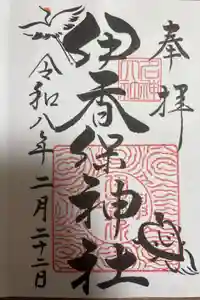 奉拝
伊香保神社
令和八年二月二十二日